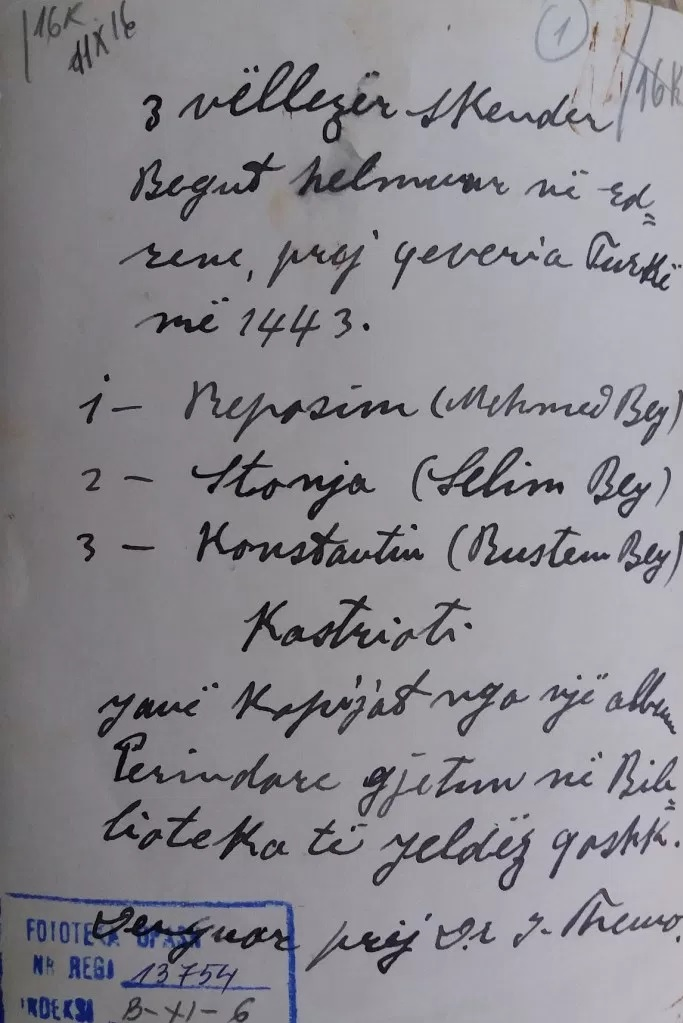 16K
11X16
1
16K
3 vëllezër Skender
Begut helmuar në Ed=
rene, prej qeveria Turkë
më 1443.
1 – Reposim (Mehmed Bey)
2 – Stanja (Selim Bey)
3 – Konstantin (Rustem Bey)
Kastrioti
janë Kopijat nga një album
Perindore gjetun në Bib=
lioteka të Jeldëz qoshk.
Derguar prej Dr J. Themo.
FOTOTEKA
NR REGJ 13754
INDEKSI B-XI-6